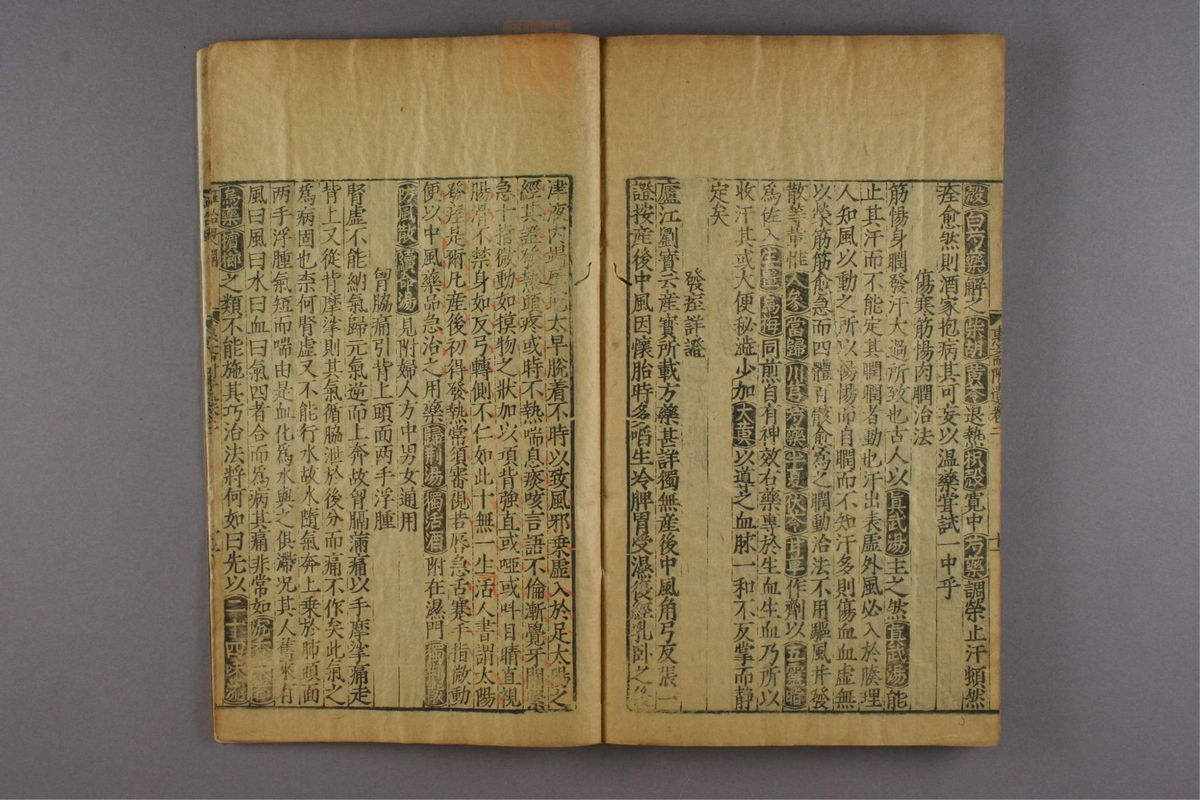 散白芍藥解之柴胡黃芩退熱枳殼寬中芍藥調榮止汗頓然
痊愈然則酒家抱病其可妄以温藥嘗試一中乎
傷寒筋惕肉瞤治法
筋惕身瞤發汗大過所致也古人以眞武湯主之然眞武湯能
止其汗而不能定其瞤瞤者動也汗出表虛外風必入於腠理
人知風以動之所以惕惕而自瞤而不知汗多則傷血血虛無
以榮筋筋愈急而四體百骸愈爲之瞤動治法不用驅風并發
散等藥惟人參當歸川芎芍藥半夏茯苓甘草作劑以五靈脂
爲佐入生薑烏梅同煎自有神效右藥專於生血生血乃所以
收汗其或大便秘澁少加大黄以道之血脉一和不反掌而靜
定矣
發痓詳證
廬江劉實云産寳所載方藥甚詳獨無産後中風角弓反張一
證按産後中風因懷胎時多啗生冷脾胃受濕復經乳卧之後
津液內竭 太早脫着不時以致風邪乗虛入於足太陽之
經其證發熱頭疼或時不熱喘息痰咳言語不倫漸覺牙關緊
急十指微動如摸物之狀加以項背強直或啞或呌目睛直視
腸滑不禁身如反弓轉側不仁如此十無一生活人書謂太陽
發痓是爾凡産後初得發熱常須審視若唇急舌蹇手指微動
便以中風藥品急治之用藥 湯獨活酒附在濕門 散
防風散續命湯見附婦人方中男女通用
胷脇痛引背上頭面兩手浮腫
腎虛不能納氣歸元氣逆而上奔故胷膈滿痛以手摩掌痛走
背上又從背摩掌則其氣循脇泄於後分而痛不作矣此氣之
爲病固也柰何腎虛又不能行水故水隨氣奔上乗於肺頭面
兩手浮腫氣短而喘由是血化爲水與之俱滯况其人舊來有
風曰風曰水曰血曰氣四者合而爲病其痛非常如
烏藥檳榔之類不能施其巧治法將何如曰先以二十四味